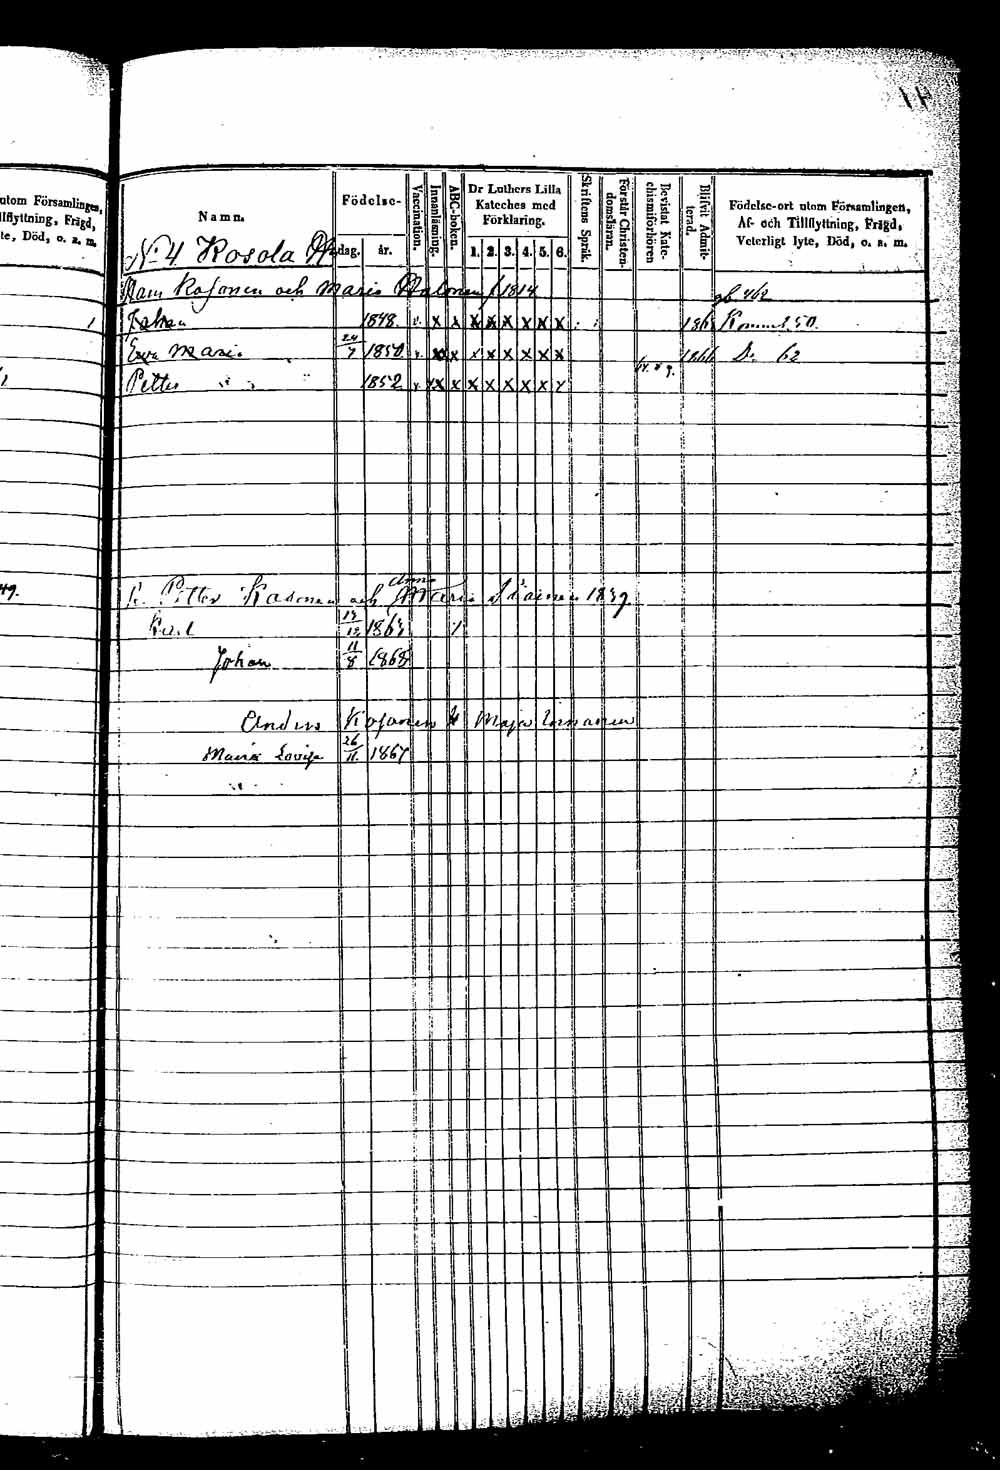 utom Församlingen,
llflyttning, Frägd,
te, Död, o. s. m.
Namn.
Födelse-
dag. år.
Vaccination.
Innanläsning.
ABC-boken.
Dr Luthers Lilla
Kateches med
Förklaring.
1. 2. 3. 4. 5. 6.
Skriftens Språk.
Förstår Christen-
domsläran.
Bevistat Kate-
chismiförhören
Blifvit Admit-
terad.
Födelse-ort utom Församlingen,
Af- och Tillflyttning, Frägd,
Veterligt lyte, Död, o. s. m.
No 4 Kosola
Kosonen och Maria f 1814
Johan 1848. v. x x x x x x x x 186 50.
Ewa Maria 24/7 1850 v. x x x x x x x x 1866 Do 62
Petter 1852 v. x x x x x x x x
49.
Petter Kosonen och Anna Maria 1839.
Karl 1863 /
Johan 11/8 1868
Anders Kosonen Maja
Maria Lovisa 26/11. 1867